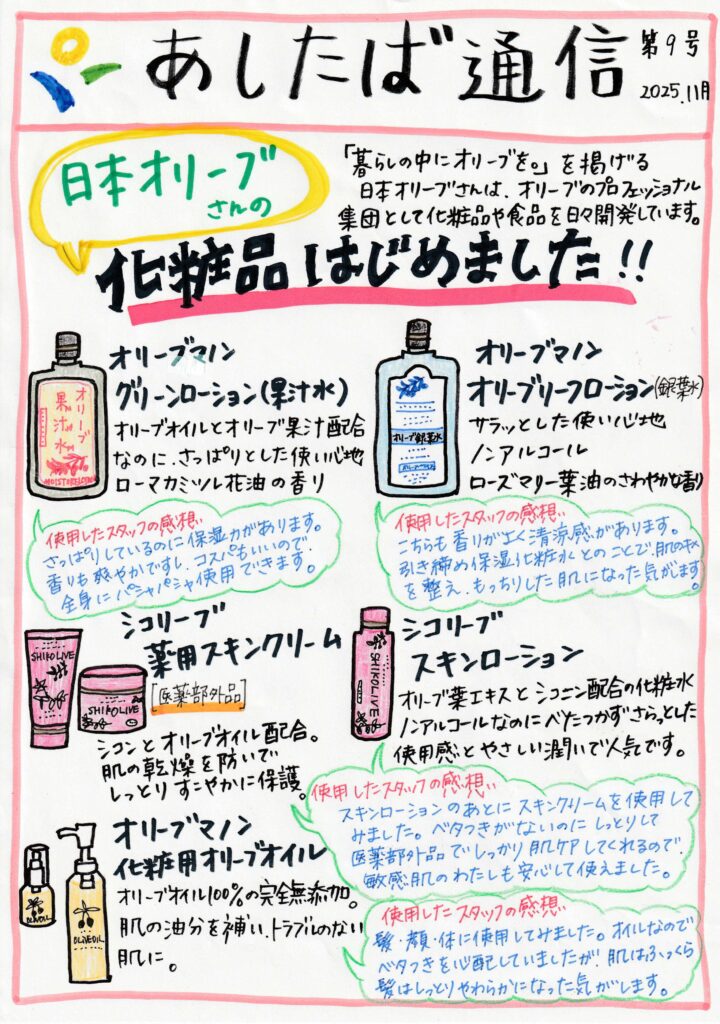 あしたば通信
第9号
2025.11月
日本オリーブ
さんの
「暮らしの中にオリーブを。」を掲げる
日本オリーブさんは、オリーブのプロフェッショナル
集団として化粧品や食品を日々開発しています。
化粧品はじめました!!
オリーブマノン
グリーンローション(果汁水)
オリーブオイルとオリーブ果汁配合
なのに、さっぱりとした使い心地
ローマカミツレ花油の香り
オリーブ
果汁水
使用したスタッフの感想
さっぱりしているのに保湿力があります。
香りも爽やかですし、コスパもいいので
全身にパシャパシャ使用できます。
オリーブマノン
オリーブリーフローション(銀葉水)
サラッとした使い心地
ノンアルコール
ローズマリー葉油のさわやかな香り
オリーブ銀葉水
使用したスタッフの感想
こちらも香りがよく清涼感があります。
引き締め保湿化粧水とのことで、肌のキメ
を整え、もっちりした肌になった気がします
シコリーブ
薬用スキンクリーム
[医薬部外品]
SHIKOLIVE
SHIKOLIVE
シコンとオリーブオイル配合。
肌の乾燥を防いで
しっとりすこやかに保護。
シコリーブ
スキンローション
SHIKOLIVE
オリーブ葉エキスとシコニン配合の化粧水
ノンアルコールなのにべたつかずさらっとした
使用感とやさしい潤いで人気です。
使用したスタッフの感想
スキンローションのあとにスキンクリームを使用して
みました。ベタつきがないのにしっとりして
医薬部外品でしっかり肌ケアしてくれるので、
敏感肌のわたしも安心して使えました。
オリーブマノン
化粧用オリーブオイル
オリーブオイル100%の完全無添加。
肌の油分を補い、トラブルのない
肌に。
OLIVEOIL
OLIVEOIL
使用したスタッフの感想
髪・顔・体に使用してみました。オイルなので
ベタつきを心配していましたが、肌はふっくら
髪はしっとりやわらかになった気がします。